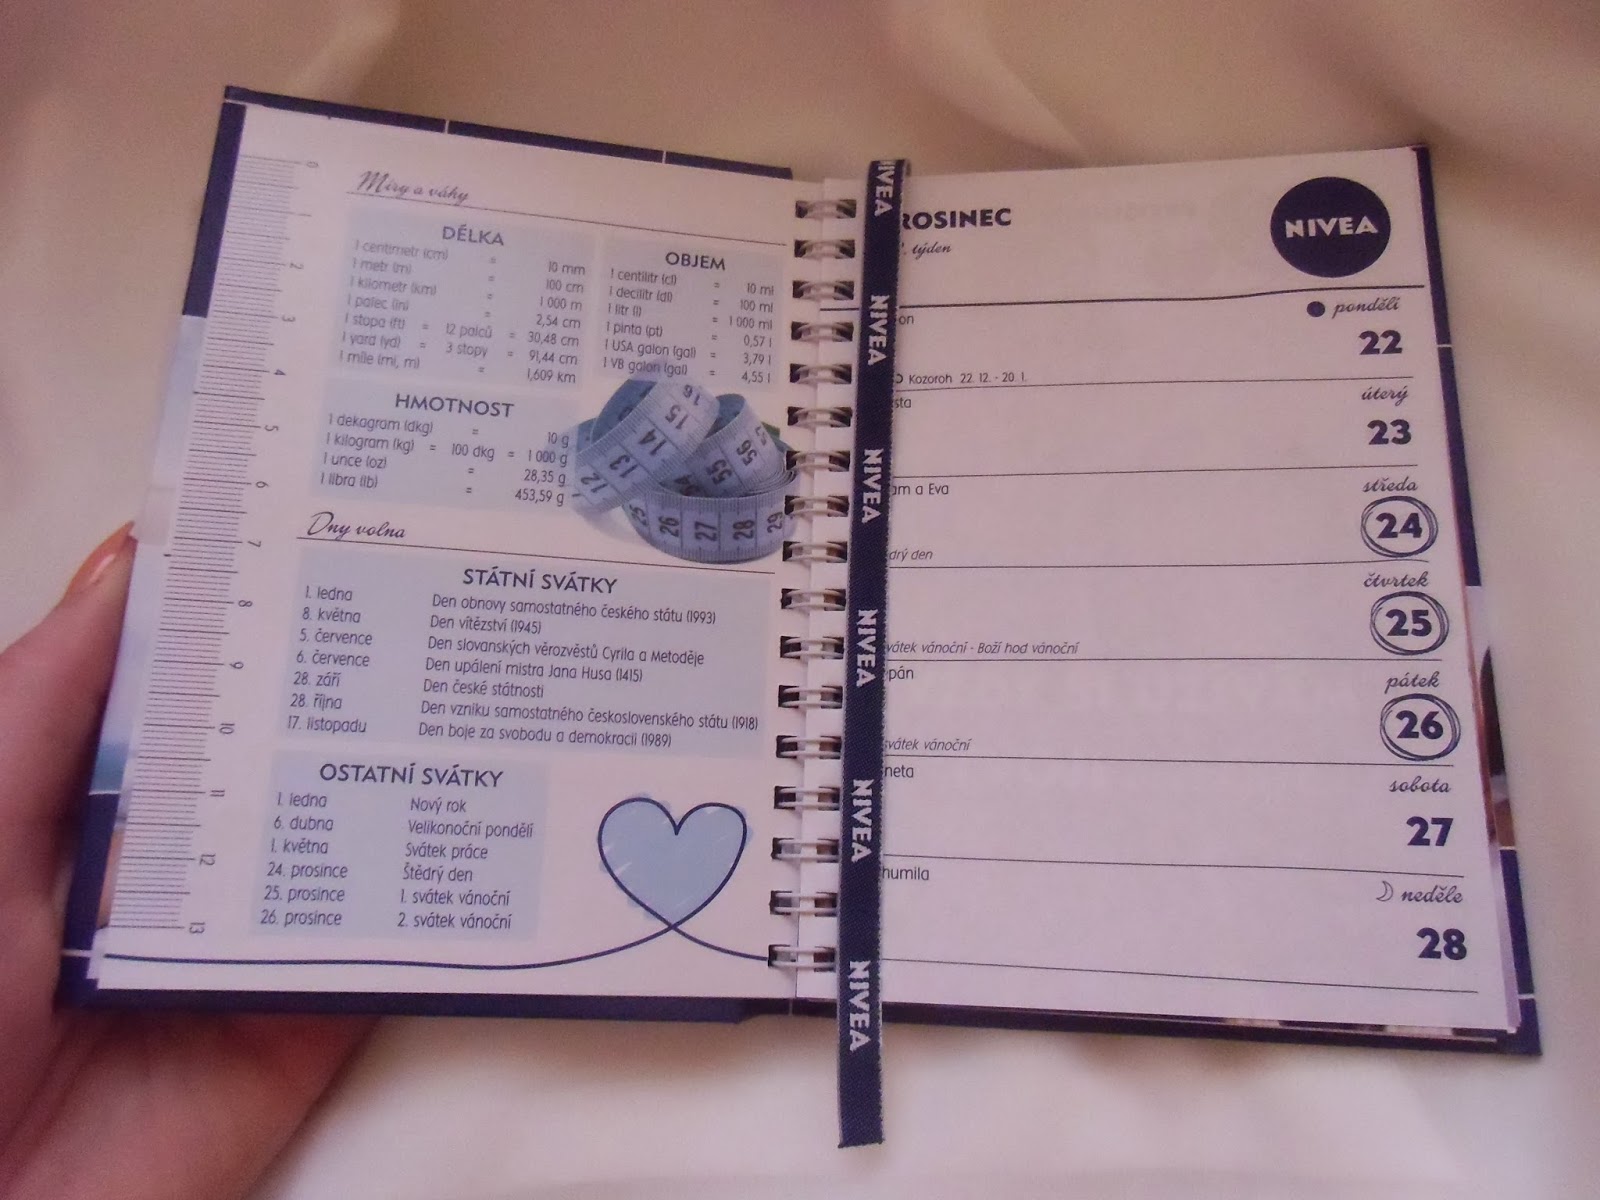 Míry a váhy
DÉLKA
1 centimetr (cm) = 10 mm
1 metr (m) = 100 cm
1 kilometr (km) = 1 000 m
1 palec (in) = 2,54 cm
1 stopa (ft) = 12 palců = 30,48 cm
1 yard (yd) = 3 stopy = 91,44 cm
1 míle (mi, m) = 1,609 km
OBJEM
1 centilitr (cl) = 10 ml
1 decilitr (dl) = 100 ml
1 litr (l) = 1 000 ml
1 pinta (pt) = 0,57 l
1 USA galon (gal) = 3,79 l
1 VB galon (gal) = 4,55 l
HMOTNOST
1 dekagram (dkg) = 10 g
1 kilogram (kg) = 100 dkg = 1 000 g
1 unce (oz) = 28,35 g
1 libra (lb) = 453,59 g
Dny volna
STÁTNÍ SVÁTKY
1. ledna Den obnovy samostatného českého státu (1993)
8. května Den vítězství (1945)
5. července Den slovanských věrozvěstů Cyrila a Metoděje
6. července Den upálení mistra Jana Husa (1415)
28. září Den české státnosti
28. října Den vzniku samostatného československého státu (1918)
17. listopadu Den boje za svobodu a demokracii (1989)
OSTATNÍ SVÁTKY
1. ledna Nový rok
6. dubna Velikonoční pondělí
1. května Svátek práce
24. prosince Štědrý den
25. prosince 1. svátek vánoční
26. prosince 2. svátek vánoční
0
1
2
3
4
5
6
7
8
9
10
11
12
13
12 13 14 15 16
54 55 56 57
25 26 27 28 29
NIVEA
NIVEA
NIVEA
NIVEA
NIVEA
NIVEA
ROSINEC
. týden
NIVEA
pondělí
on
22
Kozoroh 22. 12. - 20. 1.
úterý
sta
23
středa
am a Eva
24
drý den
čtvrtek
25
svátek vánoční - Boží hod vánoční
pátek
pán
26
svátek vánoční
sobota
neta
27
neděle
humila
28